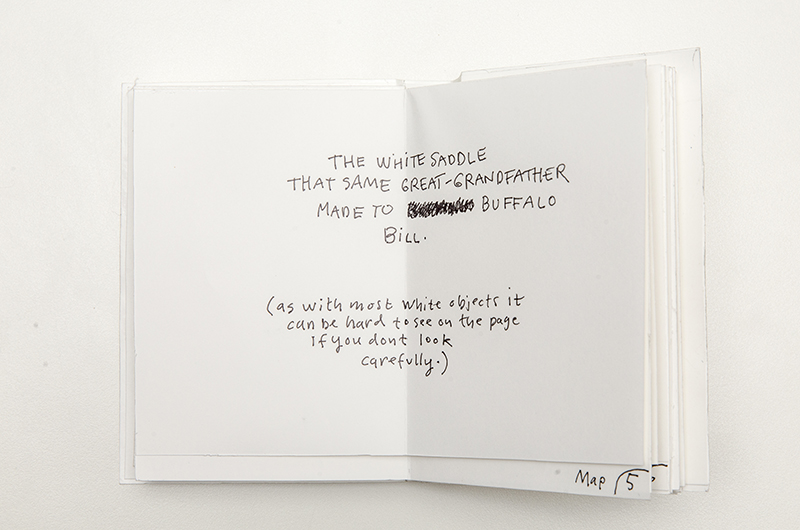 THE WHITE SADDLE
THAT SAME GREAT-GRANDFATHER
MADE TO BUFFALO
BILL.
(as with most white objects it
can be hard to see on the page
if you dont look
carefully.)
Map 5